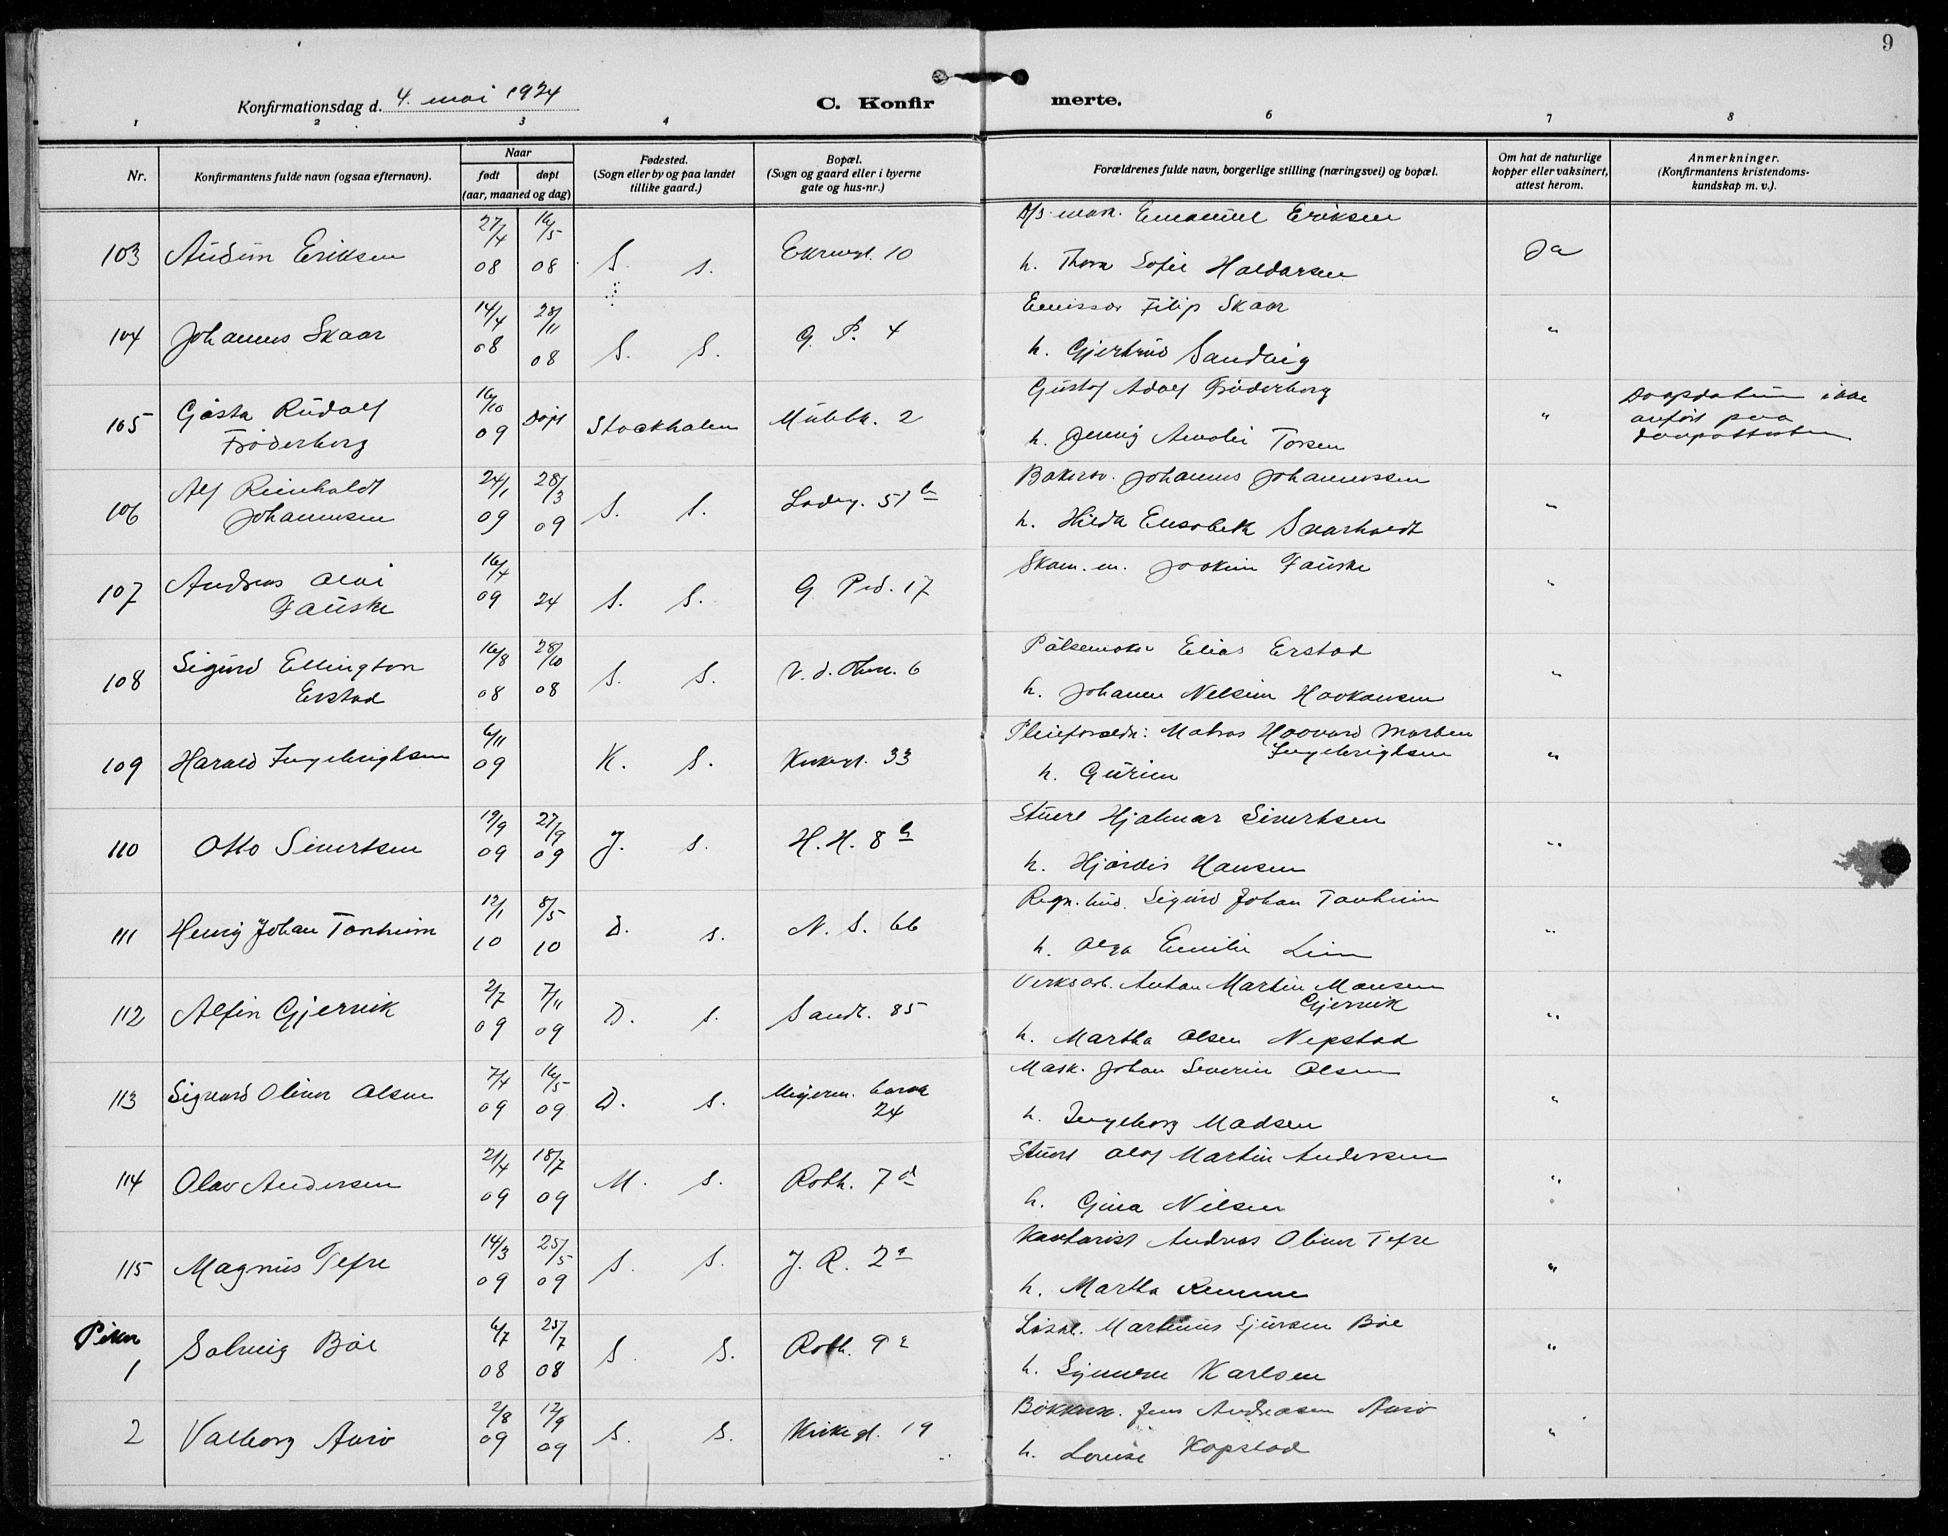 9
Konfirmationsdag d. 4. mai 1924
C. Konfir merte.
1 2 3 4 6 7 8
Nr.
Konfirmantens fulde navn (ogsaa efternavn).
Naar
født døpt
(aar, maaned og dag)
Fødested.
(Sogn eller by og paa landet
tillike gaard.)
Bopæl.
(Sogn og gaard eller i byerne
gate og hus-nr.)
Forældrenes fulde navn, borgerlige stilling (næringsvei) og bopæl.
Om hat de naturlige
kopper eller vaksinert,
attest herom.
Anmerkninger.
(Konfirmantens kristendoms-
kundskap m. v.).
D/s mask. Emanuel Eriksen
103 Audun Eriksen 27/4 08 16/5 08 S. S. 10 Ja
h. Thora Sofie Haldorsen
Emissær Filip Skaar
104 Johannes Skaar 14/4 08 28/11 08 S. S. G. P. 4 "
h. Gjertrud Sandvig
Gustof Adolf Fröderberg
105 Gøsta Rudolf Fröderberg 16/10 09 Døpt Stockholm Mühlb. 2 "
h. Jenny Amalie Torsen
Daapsdatum ikke
anført paa
daapsattesten
Johannes Johannessen
106 Alf Reinholdt Johannesen 24/1 09 28/3 09 S. S. Ladeg. 51 b "
h. Hilda Elisabeth Svarholdt
Skom. m. Joakim Fauske
107 Andreas Olai Fauske 16/4 09 24 S. S. G. Ped. 17 "
Pølsemaker Elias Erstad
108 Sigurd Ellington Erstad 16/8 08 28/10 08 S. S. 6 "
h. Johanne Nelsine Haakonsen
Pleieforældr: Matros Haavard Marten
Ingebrigtsen
109 Harald Ingebrigtsen 6/11 09 K. S. 33 "
h. Gurine
Stuert Hjalmar Sivertsen
110 Otto Sivertsen 19/9 09 27/9 09 J. S. H. H. 8 b "
h. Hjørdis Hansen
Sigurd Johan Tonheim
111 Henry Johan Tonheim 12/1 10 8/5 10 D. S. N. S. 66 "
h. Olga Emilie Lien
Verksarb. Anton Martin Monsen
Gjervik
112 Alfin Gjervik 2/7 09 7/11 09 D. S. Sandv. 85 "
h. Martha Olsen Nepstad
Mask. Johan Severin Olsen
113 Sigvard Oliver Olsen 7/4 09 16/5 09 D. S. 24 "
h. Ingeborg Madsen
Stuert Olaf Martin Andersen
114 Olav Andersen 21/4 09 18/7 09 M. S. Roth. 7 d "
h. Gina Nilsen
Kontorist Andreas Oliver Tefre
115 Magnus Tefre 14/3 09 25/5 09 S. S. J. R. 2 a "
h. Martha Remme
Piker
Martinus Sjursen Bøe
1 Solveig Bøe 6/7 08 25/7 08 S. S. Roth. 9 "
h. Karlsen
Jens Andreasen Aarø
2 Valborg Aarø 2/8 09 12/9 09 S. S. Kirkegt. 19 "
h. Louise Kopstad